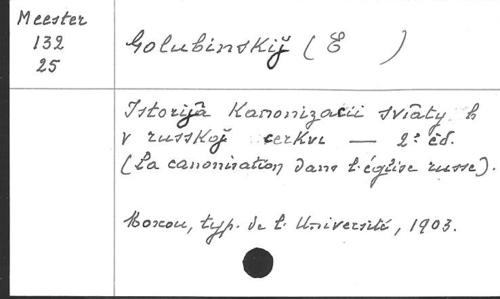 Meester
132
25
Golubinskij (E )
Istorijâ Kanonizacii sviâty h
v russkoj cerkvi — 2e éd.
(La canonisation dans l'église russe).
Moscou, typ. de l'Université, 1903.